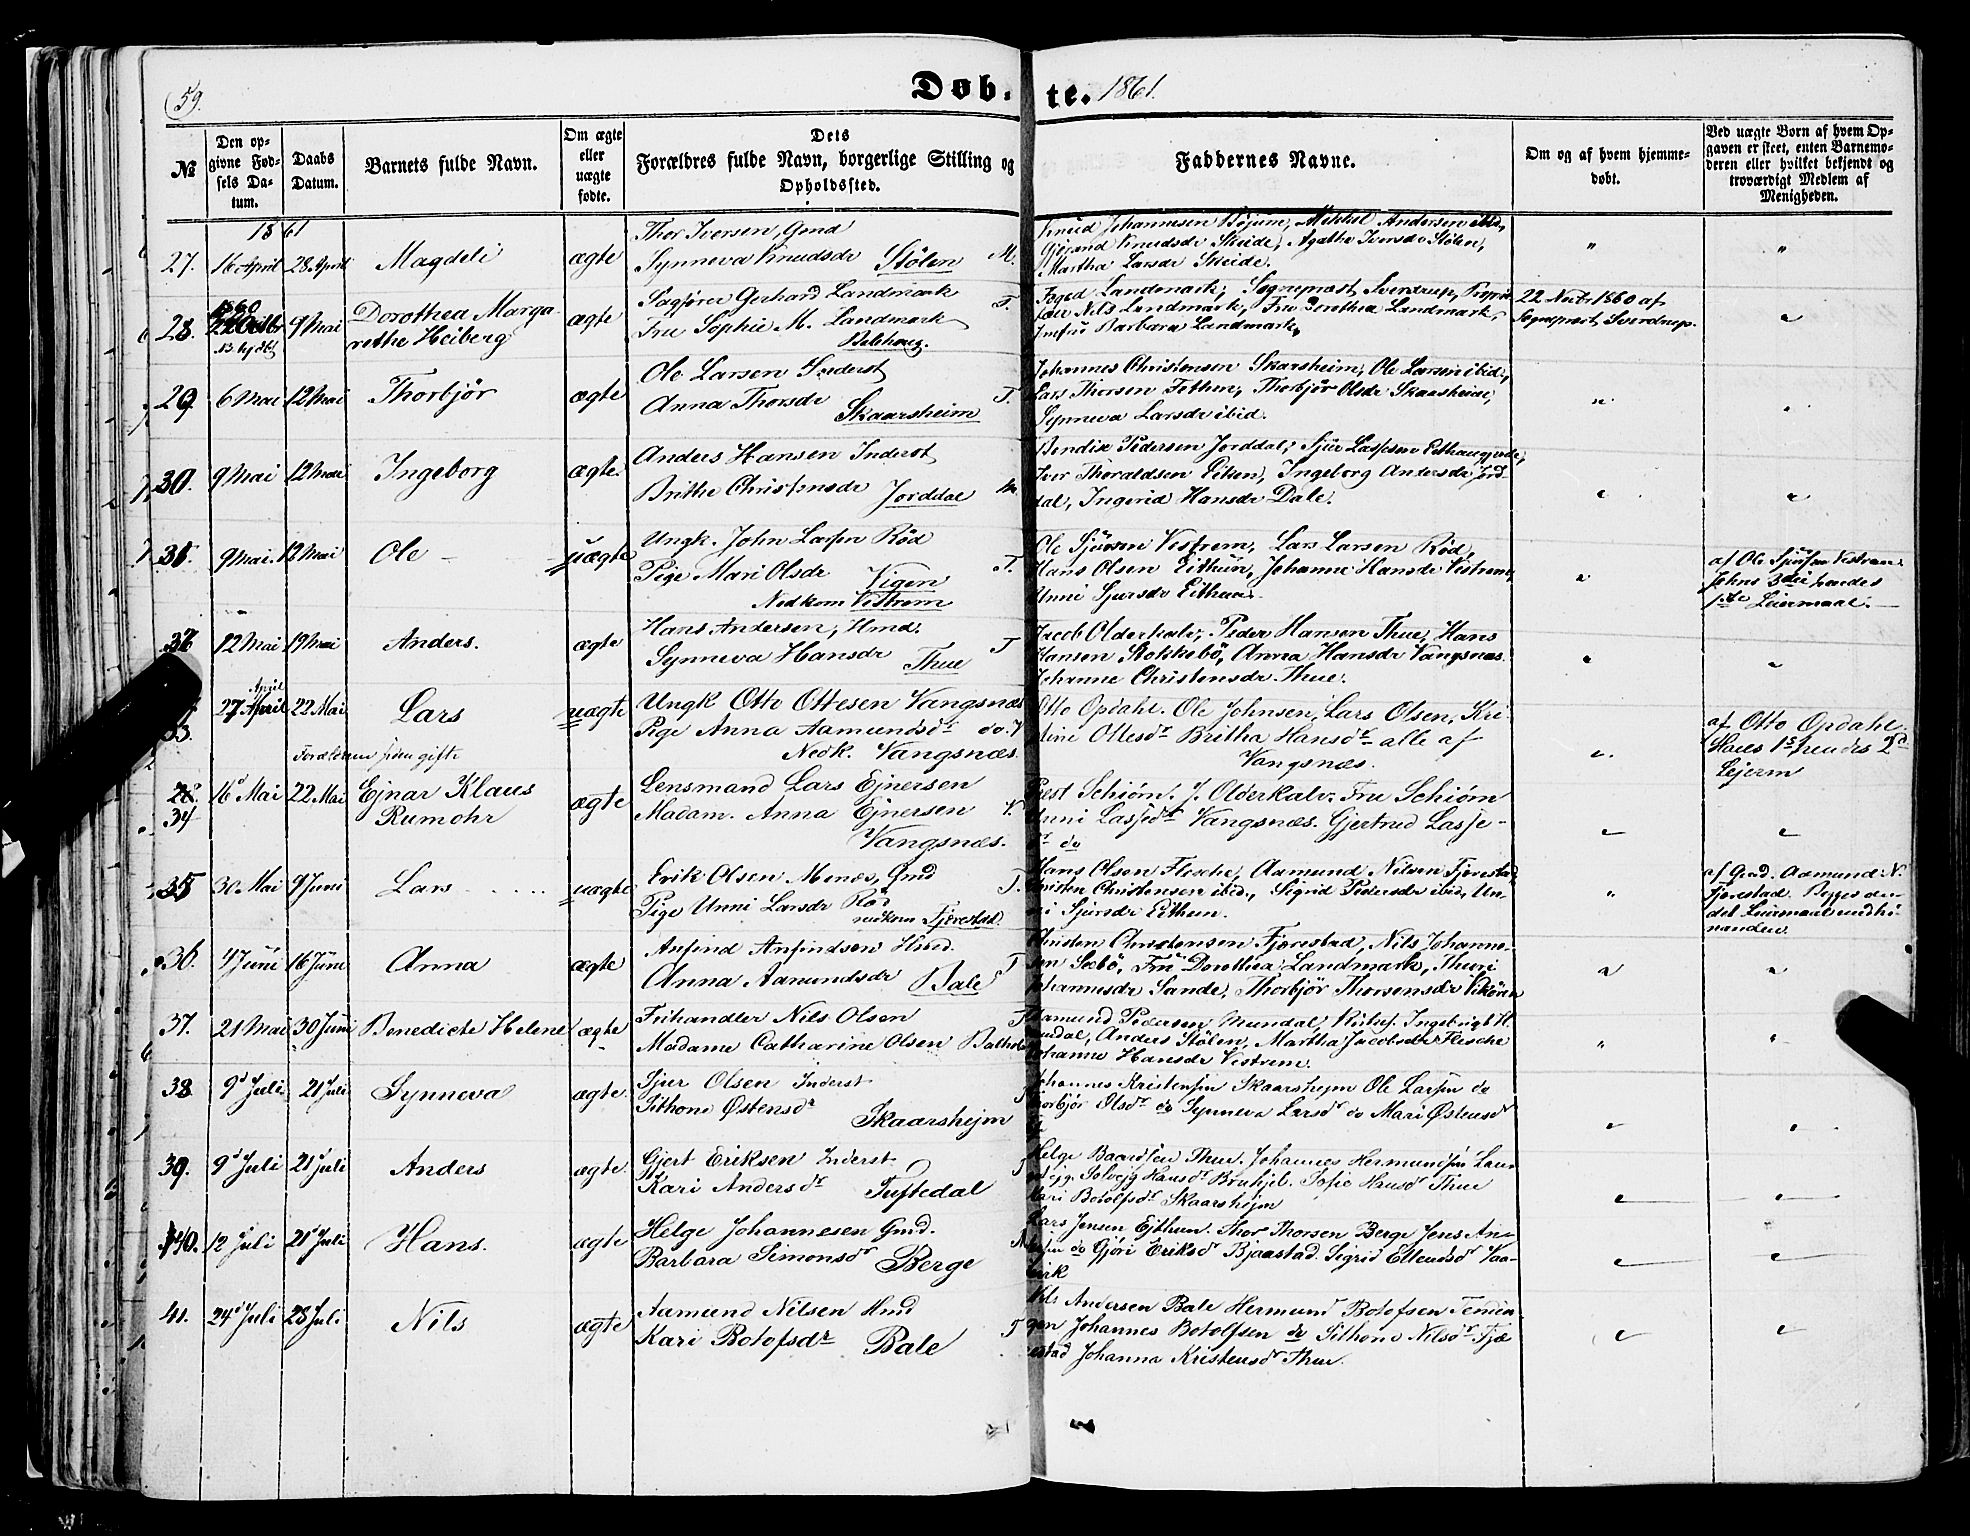 59.
Døb- te. 1861.
№
Den opgivne Fødsels Datum.
Daabs Datum.
Barnets fulde Navn.
Om ægte eller uægte fødte.
Dets Forældres fulde Navn, borgerlige Stilling og Opholdssted.
Faddernes Navne.
Om og af hvem hjemmedøbt.
Ved uægte Børn af hvem Opgaven er skeet, enten Barnemoderen eller hvilket bekjendt og troværdigt Medlem af Menigheden.
1861
27. 16 April 28 April Magdeli ægte
Thor Iversen, Gmd
Synneva Knudsdr Stølen M.
Knud Johannesen Bøjum, Mikkel Andersen ibid.,
Gjørond Knudsdr Skeide, Agathe Iversdr Stølen,
Martha Larsdr Skeide.
1860
28. 9 Mai Dorothea Margarethe Heiberg ægte
Sagfører Gerhard Landmark
Fru Sophie M. Landmark
Balehoug. T.
Foged Landmark, Sognepræst Sverdrup,
Nils Landmark, Fru Dorothea Landmark,
Jmfru Barbara Landmark,
22 Novbr 1860 af
Sognepræst Sverdrup.
29. 6 Mai 12 Mai Thorbjør ægte
Ole Larsen Inderst
Anna Thorsdr Skaarsheim T.
Johannes Christensen Skaarsheim, Ole Larsen ibid.,
Lars Thorsen Fethun, Thorbjør Olsdr Skaarsheim,
Synneva Larsdr ibid.
30. 9 Mai 12 Mai Ingeborg ægte.
Anders Hansen Inderst
Brithe Christensdr Jorddal M.
Bendix Pedersen Jorddal, Sjur Lassesen
Iver Thoraldsen Eitun, Ingeborg Andersdr Jord-
dal, Ingerid Hansdr Dale.
31. 9 Mai. 12 Mai Ole uægte
Ungk. John Larsen Rød
Pige Mari Olsdr Vigen
Nedkom Vestrem T.
Ole Sjursen Vestrem, Lars Larsen Rød,
Hans Olsen Eithun, Johanne Hansdr Vestrem,
Unni Sjursdr Eithun.
af Ole Sjursen Vestrem.
Johns 3die hendes
1ste Leiermaal.
32 12 Mai 19 Mai Anders. ægte
Hans Andersen, Hmd.
Synneva Hansdr Thue T
Jacob Olderkalv, Peder Hansen Thue, Hans
Hansen Stokkebø, Anna Hansdr Vangsnæs.
Johanne Christensdr Thue.
33. 27 April April 22 Mai Lars uægte
Forældrene siden gifte
Ungk Otto Ottesen Vangsnæs
Pige Anna Aamundsdr do.
Nedk. Vangsnæs.
Otto Opdahl. Ole Johnsen, Lars Olsen, Kri-
stine Ottesdr Britha Hansdr alle af
Vangsnæs.
af Otto Opdahl
Haus 1s hendes 2d
Lejerm
34 16 Mai 22 Mai Ejnar Klaus
Rumohr ægte
Lensmand Lars Ejnersen
Madam. Anna Ejnersen
Vangsnæs.
Præst Schiørn. J. Olderkalv. Fru Schiørn
Unni Lassesdr Vangsnæs. Gjertrud Lasse-
dr do
35 30 Mai 9 Juni Lars uægte
Erik Olsen Menes, Gmd T.
Pige Unni Larsdr Rød
nedkom Fjærestad.
Hans Olsen Flesche, Aamund Nilsen Fjærestad,
Christen Christensen ibid., Sigrid Pedersdr ibid, Un-
ni Sjursdr Eithun.
af Gmd. Aamund N.
Fjærestad. Begges an-
det Leiermaal med hi-
nanden.
36. 4 Juni 16 Juni Anna ægte
Anfind Anfindsen Hmd.
Anna Aamundsdr Bale T
Christen Christensen Fjærestad, Nils Johanne-
sen Sæbø, Fru Dorothea Landmark, Thuri
Johannesdr Sande, Thorbjør Thorsensdr Vikøren
37. 21 Mai 30 Juni Benedicte Helene ægte
Frihandler Nils Olsen
Madame Catharine Olsen
Aamund Pedersen Mundal, Ingebrigt H.
Mundal, Anders Stølen, Martha Jacobsdr Flesche
Johanne Hansdr Vestrem.
38 9d Juli 21 Juli Synneva ægte.
Sjur Olsen Inderst
Sithone Østensdr Skaarshejm
Johannes Kristensen Skaarshejm Ole Larsen do
Thorbjør Olsdr do Synneva Larsdr do Mari Østensdr
do
39. 9d Juli 21 Juli Anders ægte.
Gjert Eriksen Inderst
Kari Andersdr Tuftedal
Helge Baardsen Thue. Johannes Hermundsen
Solvejg Hansdr Sofie Hansdr Thue
Mari Botolfsdr Skaarshejm
40. 12 Juli 21 Juli Hans. ægte
Helge Johannesen Gmd.
Barbara Simonsdr Berge
Lars Jensen Ejthun. Thor Thorsen Berge Jens An-
dersen do Gjøri Eriksdr Bjaastad. Sigrid Ellendsdr Vaa-
virk
41. 24d Juli 28 Juli Nils ægte
Aamund Nilsen Hmd
Kari Botofsdr Bale T
Nils Andersen Bale Hermund Botofsen
Johannes Botolfsen do Sithone Nilsdr Fjæ-
restad Johanna Kristensdr Thue.